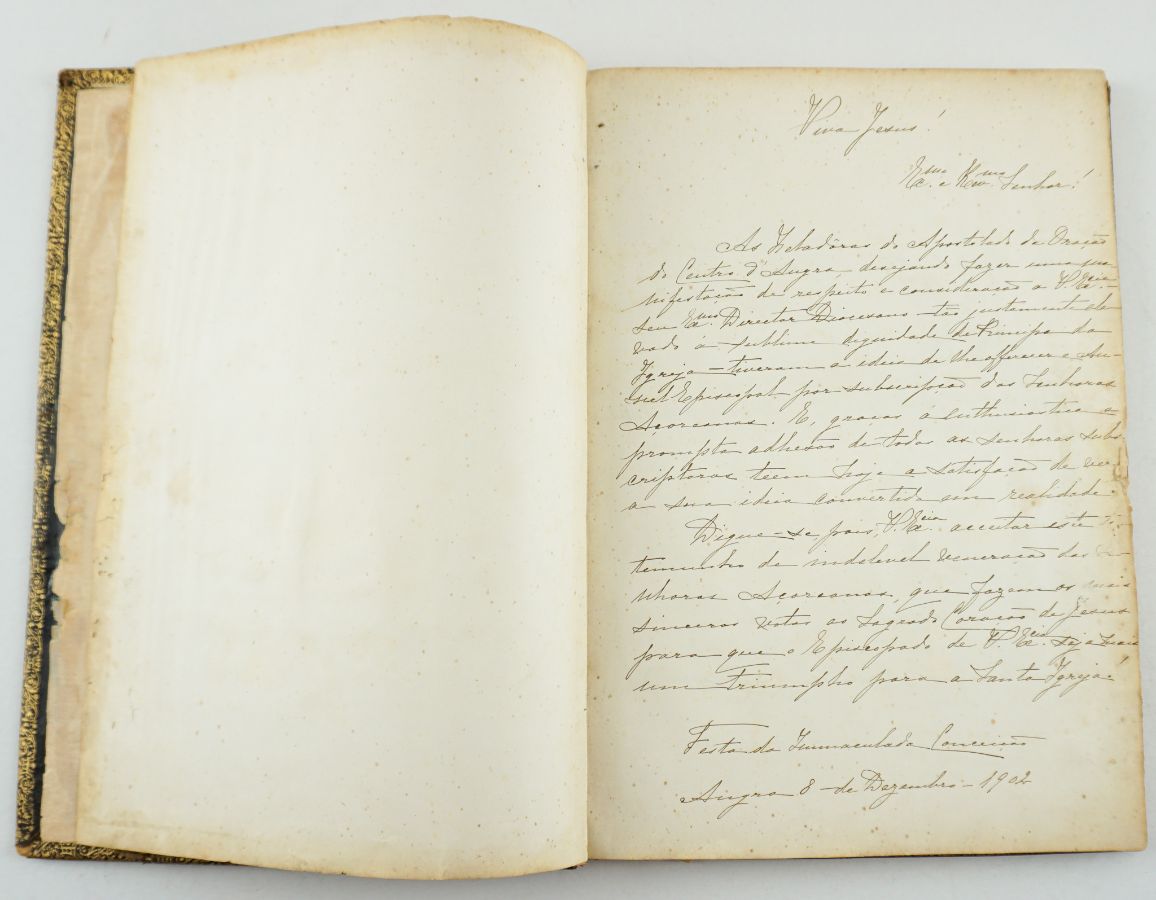 Viva Jesus!
Ex.mo e Rev.mo Senhor!
As Zeladôras do Apostolado da Oração
do Centro d'Angra desejando fazer uma ma-
nifestação de respeito e consideração a V. Ex.cia -
seu Ex.mo Director Diocesano - tão justamente ele-
vado á sublime dignidade de Principe da
Igreja - tiveram a ideia de lhe offerecer o An-
nel Episcopal por subscripção das Senhoras
Açoreanas. E, graças á enthusiastica e
prompta adhesão de todas as senhoras subs-
criptoras teem hoje a satisfação de ver
a sua ideia convertida em realidade.
Digne-se pois, V. Ex.cia acceitar este
temunho de indelevel veneração das
nhoras Açoreanas, que fazemos mais
sinceros votos ao Sagrado Coração de Jesus
para que o Episcopado de V. Ex.cia seja mais
um Triumpho para a Santa Igreja.
Festa da Immaculada Conceição
Angra 8 de Dezembro - 1902